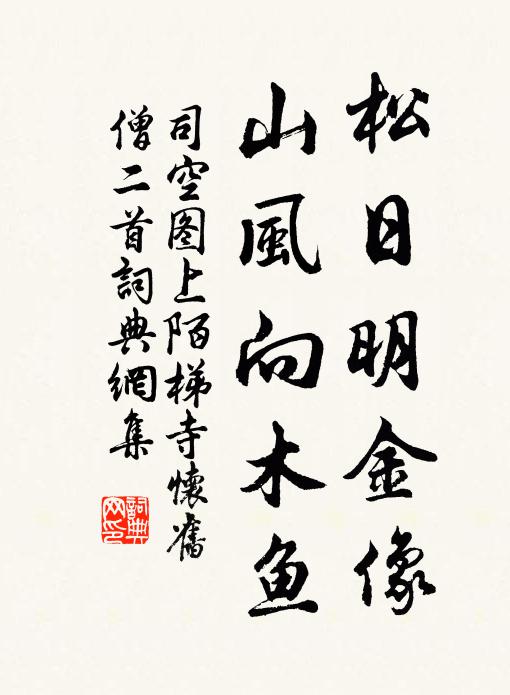 松日明金像
山風向木鱼
司空图上陌梯寺懷舊
僧二首詞典網集
詞典
网印